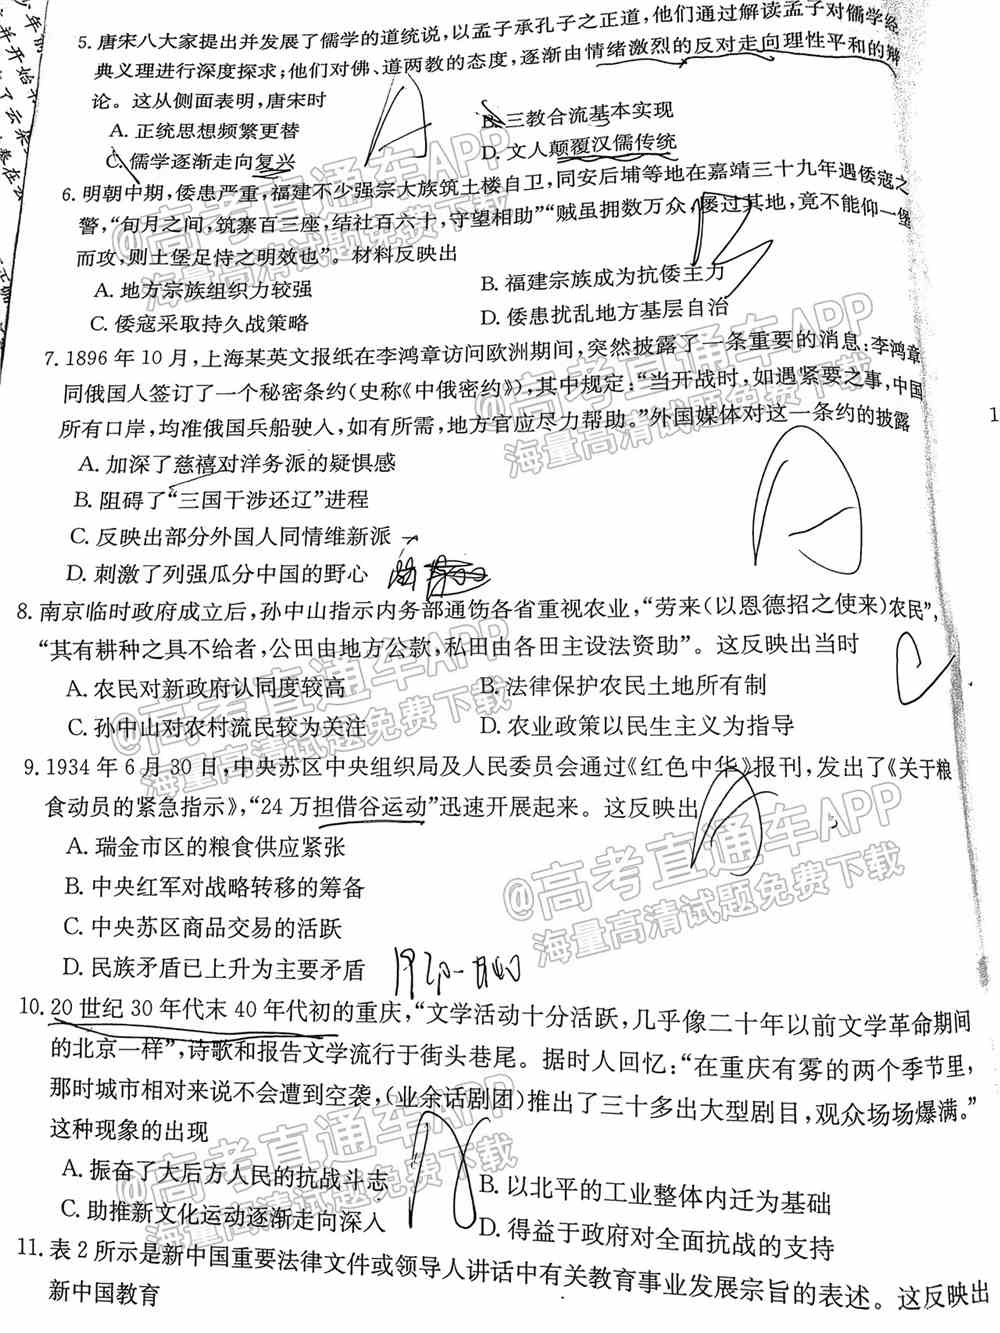 5. 唐宋八大家提出并发展了儒学的道统说，以孟子承孔子之正道，他们通过解读孟子对儒学经
典义理进行深度探求；他们对佛、道两教的态度，逐渐由情绪激烈的反对走向理性平和的辩
论。这从侧面表明，唐宋时
A. 正统思想频繁更替
B. 三教合流基本实现
C. 儒学逐渐走向复兴
D. 文人颠覆汉儒传统
A
6. 明朝中期，倭患严重，福建不少强宗大族筑土楼自卫，同安后埔等地在嘉靖三十九年遇倭寇之
警，“旬月之间，筑寨百三座，结社百六十，守望相助”“贼虽拥数万众，屡过其地，竟不能仰一堡
而攻，则土堡足恃之明效也”。材料反映出
A. 地方宗族组织力较强
B. 福建宗族成为抗倭主力
C. 倭寇采取持久战策略
D. 倭患扰乱地方基层自治
7. 1896 年 10 月，上海某英文报纸在李鸿章访问欧洲期间，突然披露了一条重要的消息：李鸿章
同俄国人签订了一个秘密条约(史称《中俄密约》)，其中规定：“当开战时，如遇紧要之事，中国
所有口岸，均准俄国兵船驶入，如有所需，地方官应尽力帮助。”外国媒体对这一条约的披露
A. 加深了慈禧对洋务派的疑惧感
B. 阻碍了“三国干涉还辽”进程
C. 反映出部分外国人同情维新派
D. 刺激了列强瓜分中国的野心
A
8. 南京临时政府成立后，孙中山指示内务部通饬各省重视农业，“劳来(以恩德招之使来)农民”，
“其有耕种之具不给者，公田由地方公款，私田由各田主设法资助”。这反映出当时
A. 农民对新政府认同度较高
B. 法律保护农民土地所有制
C. 孙中山对农村流民较为关注
D. 农业政策以民生主义为指导
C
9. 1934 年 6 月 30 日，中央苏区中央组织局及人民委员会通过《红色中华》报刊，发出了《关于粮
食动员的紧急指示》，“24 万担借谷运动”迅速开展起来。这反映出
A. 瑞金市区的粮食供应紧张
B. 中央红军对战略转移的筹备
C. 中央苏区商品交易的活跃
D. 民族矛盾已上升为主要矛盾
A
10. 20 世纪 30 年代末 40 年代初的重庆，“文学活动十分活跃，几乎像二十年以前文学革命期间
的北京一样”，诗歌和报告文学流行于街头巷尾。据时人回忆：“在重庆有雾的两个季节里，
那时城市相对来说不会遭到空袭，(业余话剧团)推出了三十多出大型剧目，观众场场爆满。”
这种现象的出现
A. 振奋了大后方人民的抗战斗志
B. 以北平的工业整体内迁为基础
C. 助推新文化运动逐渐走向深入
D. 得益于政府对全面抗战的支持
11. 表 2 所示是新中国重要法律文件或领导人讲话中有关教育事业发展宗旨的表述。这反映出
新中国教育
@高考直通车APP
海量高清试题免费下载
@高考直通车APP
海量高清试题免费下载
@高考直通车APP
海量高清试题免费下载
@高考直通车APP
海量高清试题免费下载
@高考直通车APP
海量高清试题免费下载